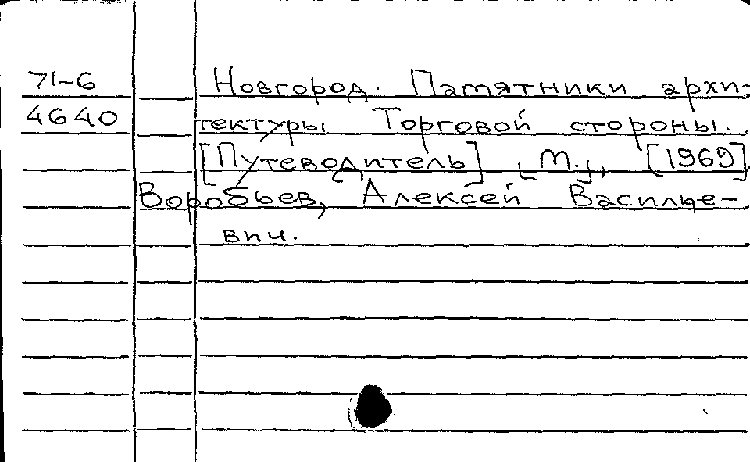 71-6 Новгород. Памятники архи-
4640 тектуры Торговой стороны.
[Путеводитель] [М.], [1969]
Воробьев, Алексей Василье-
вич.